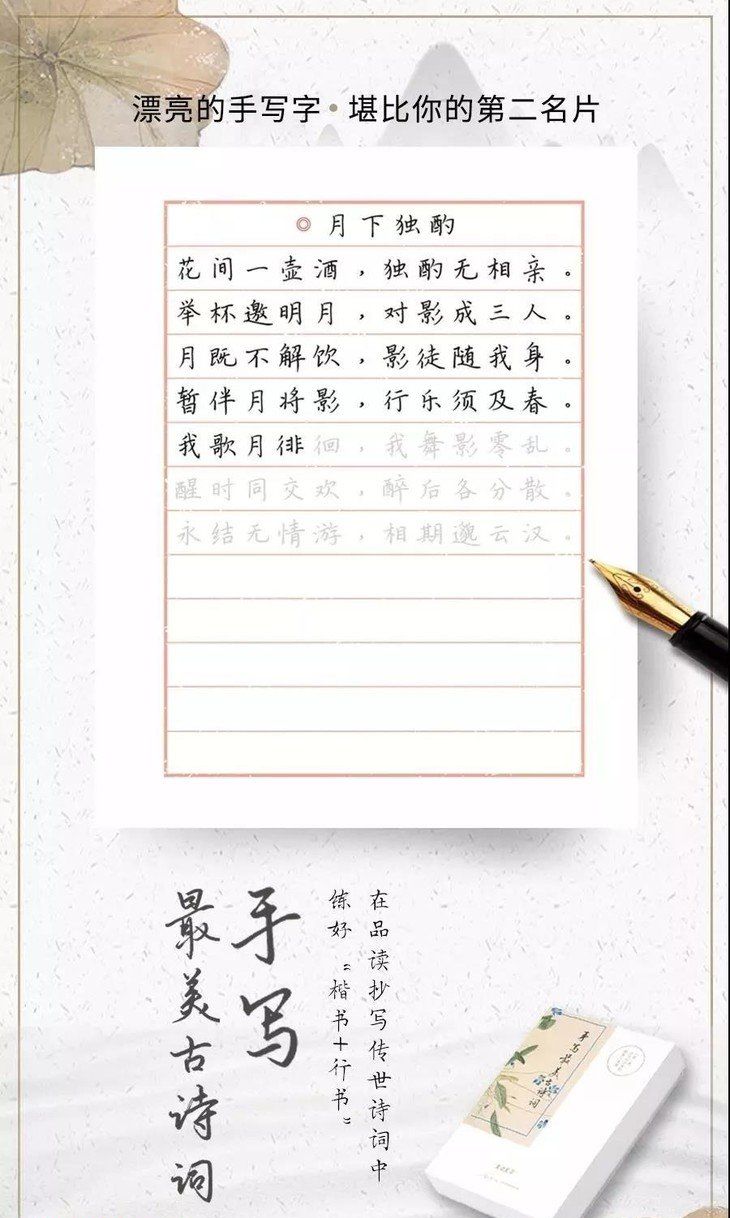 漂亮的手写字•堪比你的第二名片
◎月下独酌
花间一壶酒，独酌无相亲。
举杯邀明月，对影成三人。
月既不解饮，影徒随我身。
暂伴月将影，行乐须及春。
我歌月徘徊，我舞影零乱。
醒时同交欢，醉后各分散。
永结无情游，相期邈云汉。
在品读抄写传世诗词中
练好“楷书+行书”
手写
最美古诗词
手写最美
古诗词